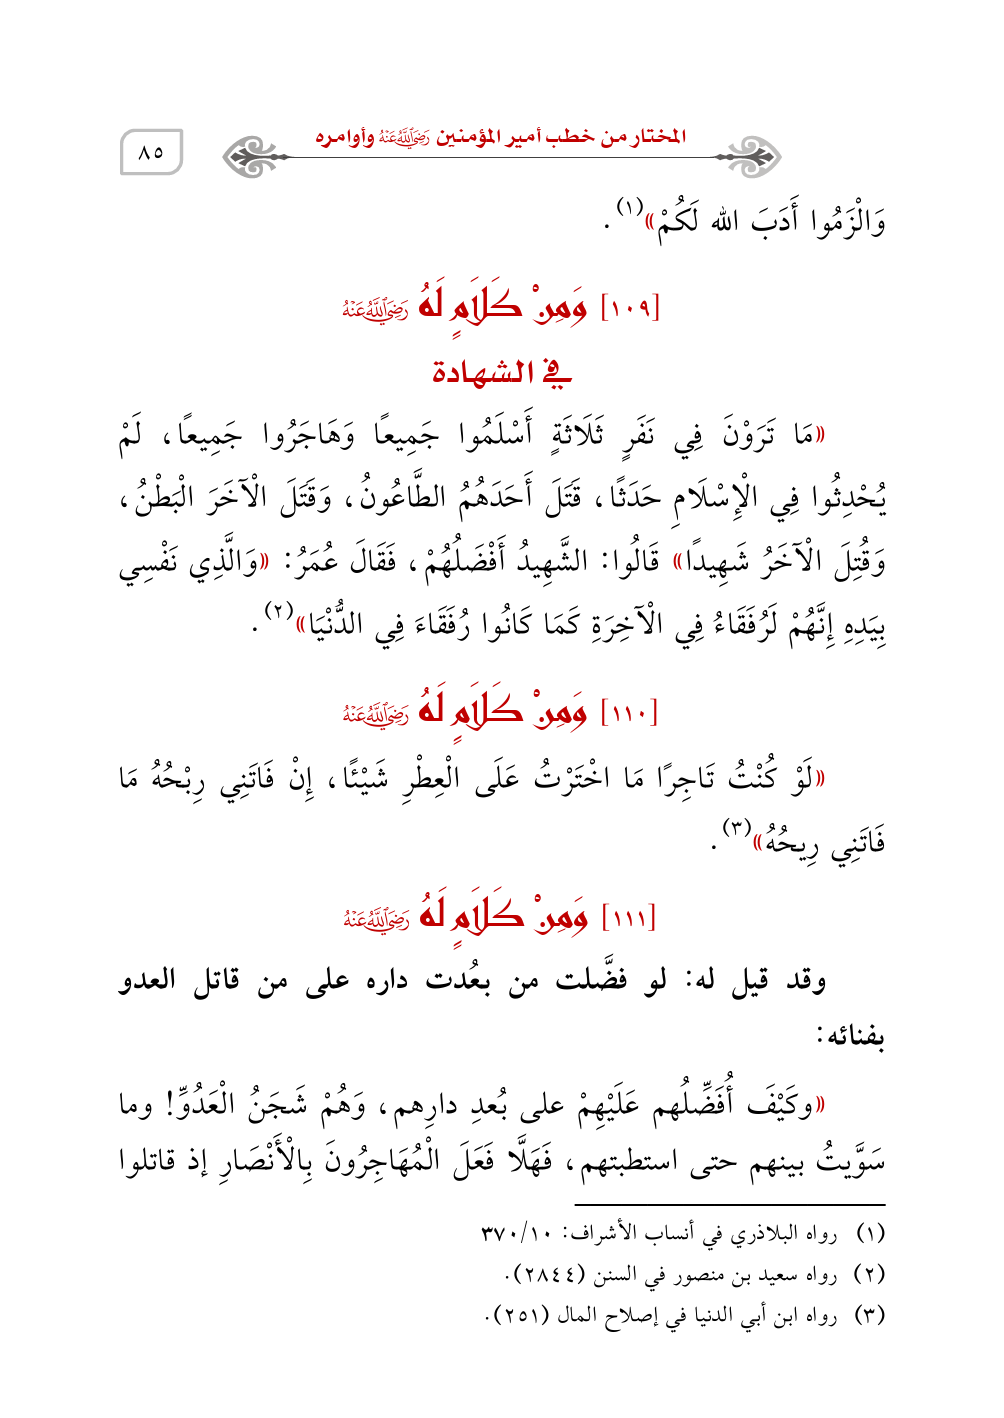 المختار من خطب أمير المؤمنين رَضِيَ اللَّهُ عَنْهُ وأوامره
٨٥
وَالْزَمُوا أَدَبَ الله لَكُمْ»(١).
[١٠٩] وَمِنْ كَلَامٍ لَهُ رَضِيَ اللَّهُ عَنْهُ
في الشهادة
«مَا تَرَوْنَ فِي نَفَرٍ ثَلَاثَةٍ أَسْلَمُوا جَمِيعًا وَهَاجَرُوا جَمِيعًا، لَمْ
يُحْدِثُوا فِي الْإِسْلَامِ حَدَثًا، قَتَلَ أَحَدَهُمُ الطَّاعُونُ، وَقَتَلَ الْآخَرَ الْبَطْنُ،
وَقُتِلَ الْآخَرُ شَهِيدًا» قَالُوا: الشَّهِيدُ أَفْضَلُهُمْ، فَقَالَ عُمَرُ: «وَالَّذِي نَفْسِي
بِيَدِهِ إِنَّهُمْ لَرُفَقَاءُ فِي الْآخِرَةِ كَمَا كَانُوا رُفَقَاءَ فِي الدُّنْيَا»(٢).
[١١٠] وَمِنْ كَلَامٍ لَهُ رَضِيَ اللَّهُ عَنْهُ
«لَوْ كُنْتُ تَاجِرًا مَا اخْتَرْتُ عَلَى الْعِطْرِ شَيْئًا، إِنْ فَاتَنِي رِبْحُهُ مَا
فَاتَنِي رِيحُهُ»(٣).
[١١١] وَمِنْ كَلَامٍ لَهُ رَضِيَ اللَّهُ عَنْهُ
وقد قيل له: لو فضَّلت من بعُدت داره على من قاتل العدو
بفنائه:
«وكَيْفَ أُفَضِّلُهم عَلَيْهِمْ على بُعدِ دارِهم، وَهُمْ شَجَنُ الْعَدُوِّ! وما
سَوَّيتُ بينهم حتى استطبتهم، فَهَلَّا فَعَلَ الْمُهَاجِرُونَ بِالْأَنْصَارِ إذ قاتلوا
(١) رواه البلاذري في أنساب الأشراف: ٣٧٠/١٠
(٢) رواه سعيد بن منصور في السنن (٢٨٤٤).
(٣) رواه ابن أبي الدنيا في إصلاح المال (٢٥١).